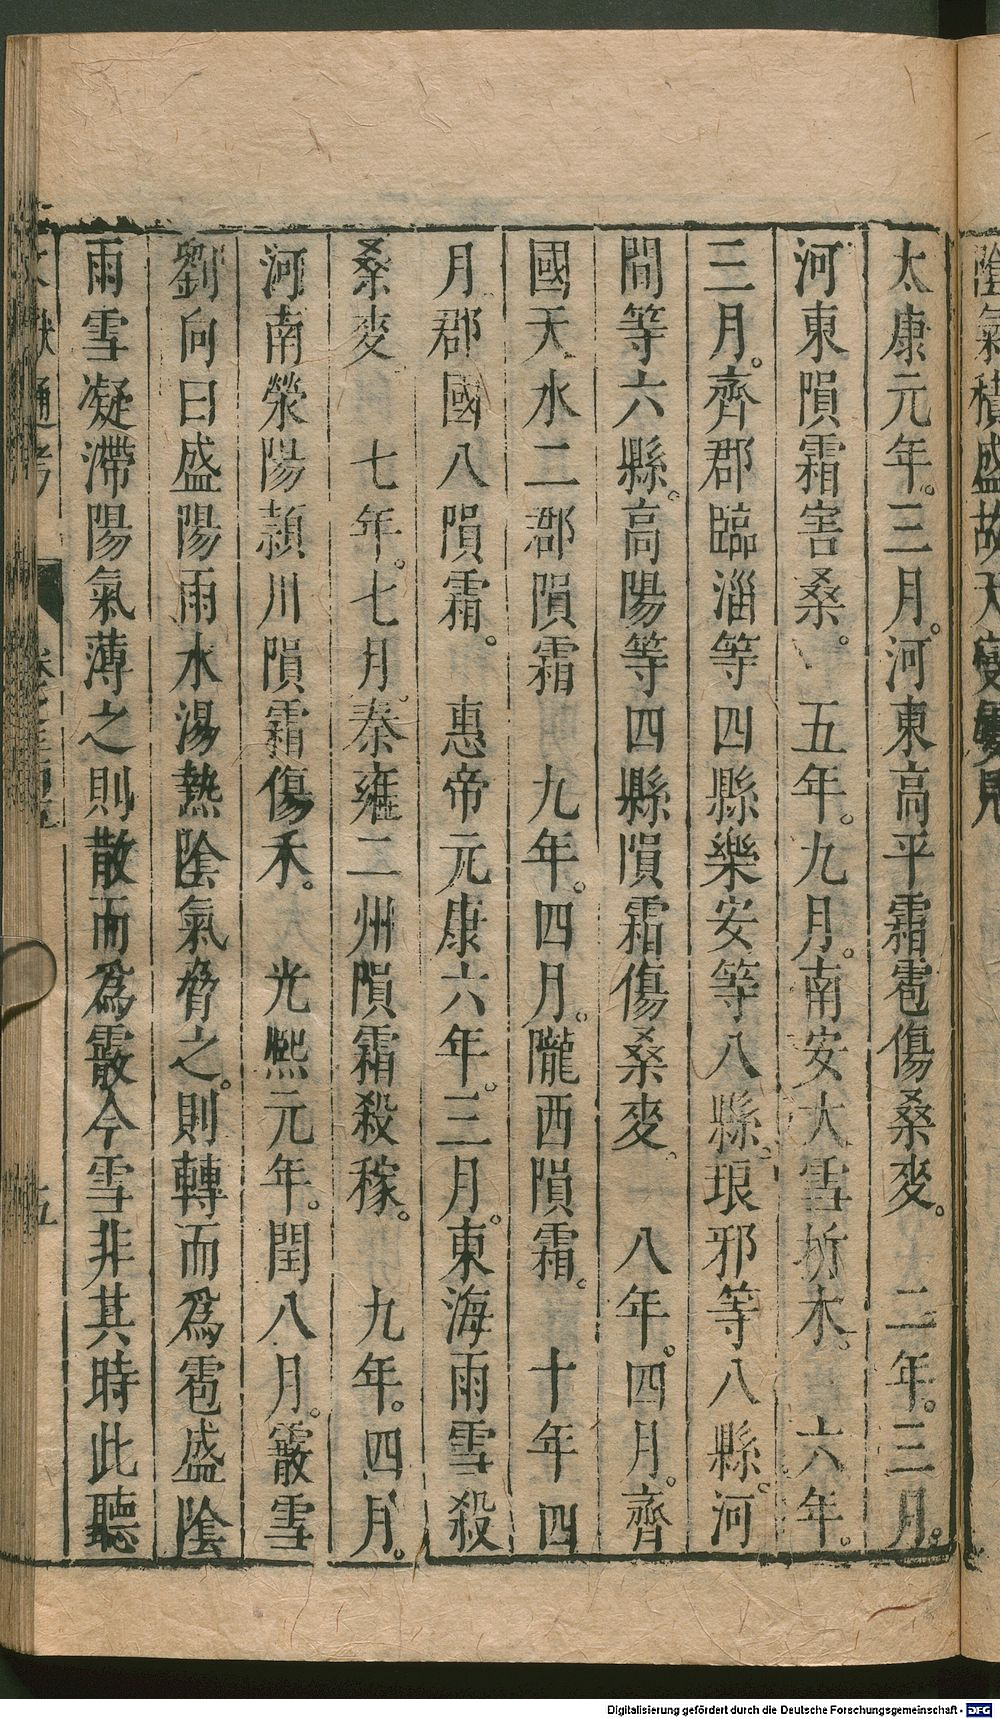 陰氣積盛故天變屢見
太康元年。三月。河東高平霜雹傷桑麥。 二年。三月。
河東隕霜害桑。 五年。九月。南安大雪折木。 六年。
三月。齊郡臨淄等四縣樂安等八縣。琅邪等八縣。河
間等六縣。高陽等四縣隕霜傷桑麥。 八年。四月。齊
國天水二郡隕霜 九年。四月。隴西隕霜。 十年四
月郡國八隕霜。 惠帝元康六年。三月。東海雨雪殺
桑麥 七年。七月。秦雍二州隕霜殺稼。 九年。四月。
河南滎陽潁川隕霜傷禾。 光熙元年。閏八月。霰雪
劉向曰盛陽雨水湯熱陰氣脅之。則轉而爲雹盛陰
雨雪凝滯陽氣薄之則散而爲霰今雪非其時此聽
文獻通考 卷之三百五 五
Digitalisierung gefördert durch die Deutsche Forschungsgemeinschaft - DFG